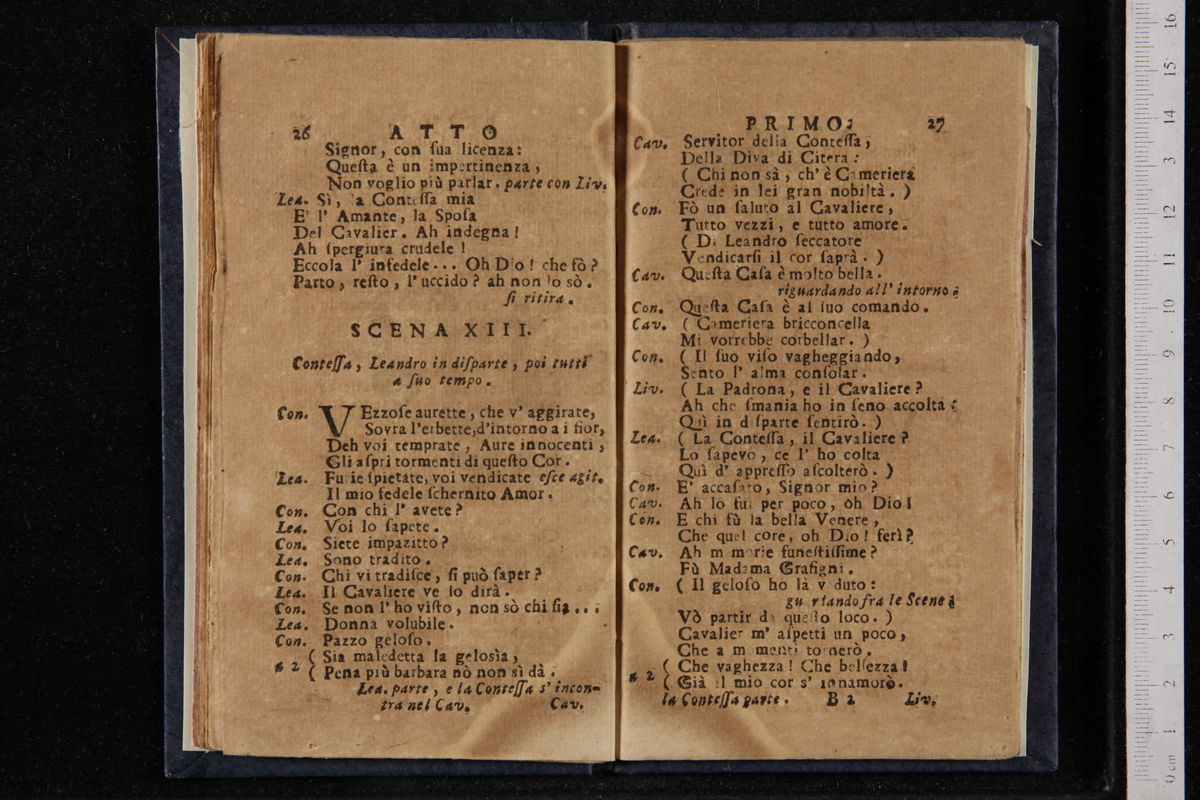 26 ATTO
Signor, con ſua licenza:
Queſta è un impertinenza,
Non voglio più parlar. parte con Liv.
Lea. Sì, la Conteſſa mia
E' l' Amante, la Spoſa
Del Cavalier. Ah indegna!
Ah ſpergiura crudele!
Eccola l' infedele... Oh Dio! che fò?
Parto, reſto, l'uccido? ah non lo sò.
ſi ritira.
SCENA XIII.
Conteſſa, Leandro in diſparte, poi tutti
a ſuo tempo.
Con. VEzzoſe aurette, che v' aggirate,
Sovra l'erbette, d'intorno a i fior,
Deh voi temprate, Aure innocenti,
Gli aſpri tormenti di queſto Cor.
Lea. Furie ſpietate, voi vendicate eſce agit.
Il mio fedele ſchernito Amor.
Con. Con chi l' avete?
Lea. Voi lo ſapete.
Con. Siete impazitto?
Lea. Sono tradito.
Con. Chi vi tradiſce, ſi può ſaper?
Lea. Il Cavaliere ve lo dirà.
Con. Se non l' ho viſto, non sò chi ſia...
Lea. Donna volubile.
Con. Pazzo geloſo.
a 2 ( Sia maledetta la gelosìa,
( Pena più barbara nò non sì dà.
Lea. parte, e la Conteſſa s' incon-
tra nel Cav. Cav.
PRIMO. 27
Cav. Servitor della Conteſſa,
Della Diva di Citera:
( Chi non sà, ch' è Cameriera
Crede in lei gran nobiltà. )
Con. Fò un ſaluto al Cavaliere,
Tutto vezzi, e tutto amore.
( Di Leandro ſeccatore
Vendicarſi il cor ſaprà. )
Cav. Queſta Caſa è molto bella.
riguardando all' intorno.
Con. Queſta Caſa è al ſuo comando.
Cav. ( Cameriera bricconcella
Mi vorrebbe corbellar. )
Con. ( Il ſuo viſo vagheggiando,
Sento l' alma conſolar.
Liv. ( La Padrona, e il Cavaliere?
Ah che ſmania ho in ſeno accolta:
Quì in diſparte ſentirò. )
Lea. ( La Conteſſa, il Cavaliere?
Lo ſapevo, ce l' ho colta
Quì d' appreſſo aſcolterò. )
Con. E' accaſato, Signor mio?
Cav. Ah lo fui per poco, oh Dio!
Con. E chi fù la bella Venere,
Che quel core, oh Dio! ferì?
Cav. Ah memorie funeſtiſſime?
Fù Madama Grafigni.
Con. ( Il geloſo ho là veduto:
guardando fra le Scene.
Vò partir da queſto loco. )
Cavalier m' aſpetti un poco,
Che a momenti tornerò.
a 2 ( Che vaghezza! Che bellezza!
( Già il mio cor s' innamorò.
la Conteſſa parte. B 2 Liv.
16
15
14
13
12
11
10
9
8
7
6
5
4
3
2
1
0 cm